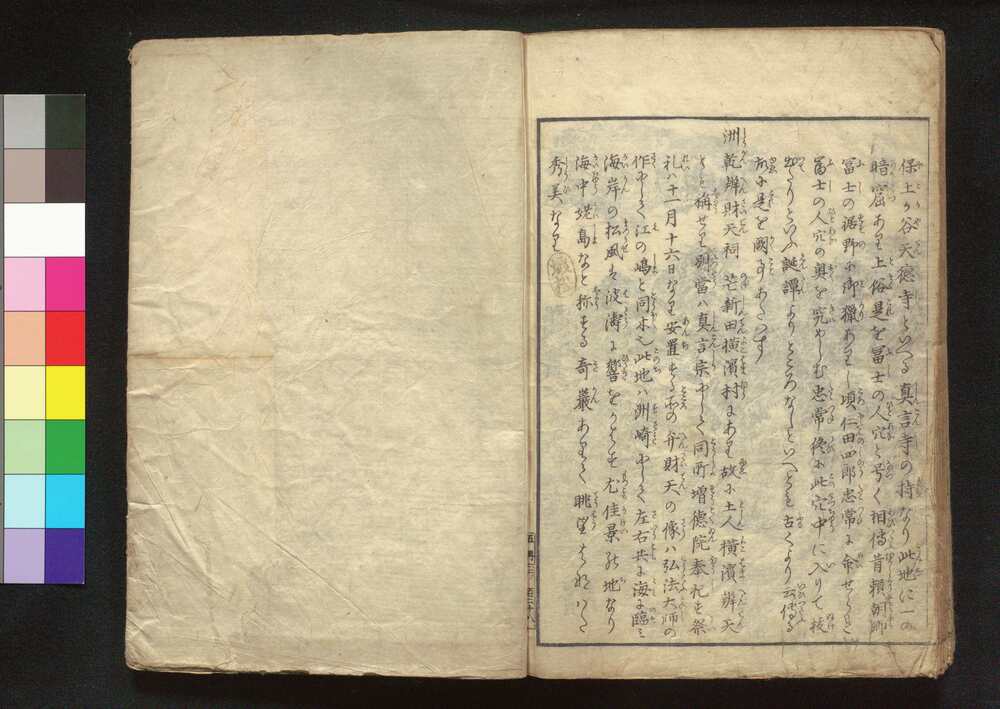 保土ヶ谷天徳寺といへる真言寺の持なり此地に一の
暗窟あり土俗是を冨士の人穴と号く相傳昔頼朝卿
冨士の裾野に御獵ありし頃仁田四郎忠常に命せられ
冨士の人穴の奥を究めしむ忠常終に此穴中に入りて
出たりといふ誕譚よりところなしといへとも古くより云傳る
所に是を園にあらはす
洲乾辨財天祠 芒新田横濱村にあり故に土人横濱辨天
とも稱せり別當ハ真言宗にして同所増徳院奉祀す祭
礼ハ十一月十六日なり安置する所の弁財天の像ハ弘法大師の
作にして江の嶋と同木也此地ハ洲崎にして左右共に海に臨ミ
海岸の松風ハ波濤に響をかはす尤佳景の地なり
海中姥島なと称する奇巌ありて眺望
秀美なり